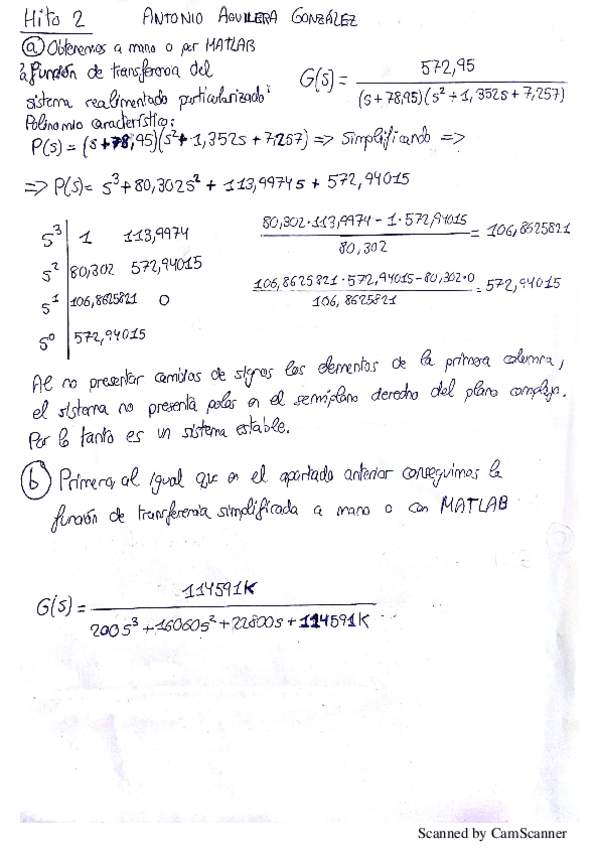 Hito 2 ANTONIO AGUILERA GONZÁLEZ
ⓐ Obtenemos a mano o por MATLAB
función de transferencia del
sistema realimentado particularizado:
G(s) = 572,95 / (s+78,95)(s²+1,352s+7,257)
Polinomio característico:
P(s) = (s+78,95)(s²+1,352s+7,257) => Simplificando =>
=> P(s) = s³+80,302s²+113,9974s+572,94015
s³ | 1 113,9974
s² | 80,302 572,94015
s¹ | 106,8625821 0
s⁰ | 572,94015
80,302·113,9974-1·572,94015 / 80,302 = 106,8625821
106,8625821·572,94015-80,302·0 / 106,8625821 = 572,94015
Al no presentar cambios de signos los elementos de la primera columna,
el sistema no presenta polos en el semiplano derecho del plano complejo.
Por lo tanto es un sistema estable.
ⓑ Primero, al igual que en el apartado anterior conseguimos la
función de transferencia simplificada a mano o con MATLAB
G(s) = 114591K / 200s³+16060s²+22800s+114591K
Scanned by CamScanner